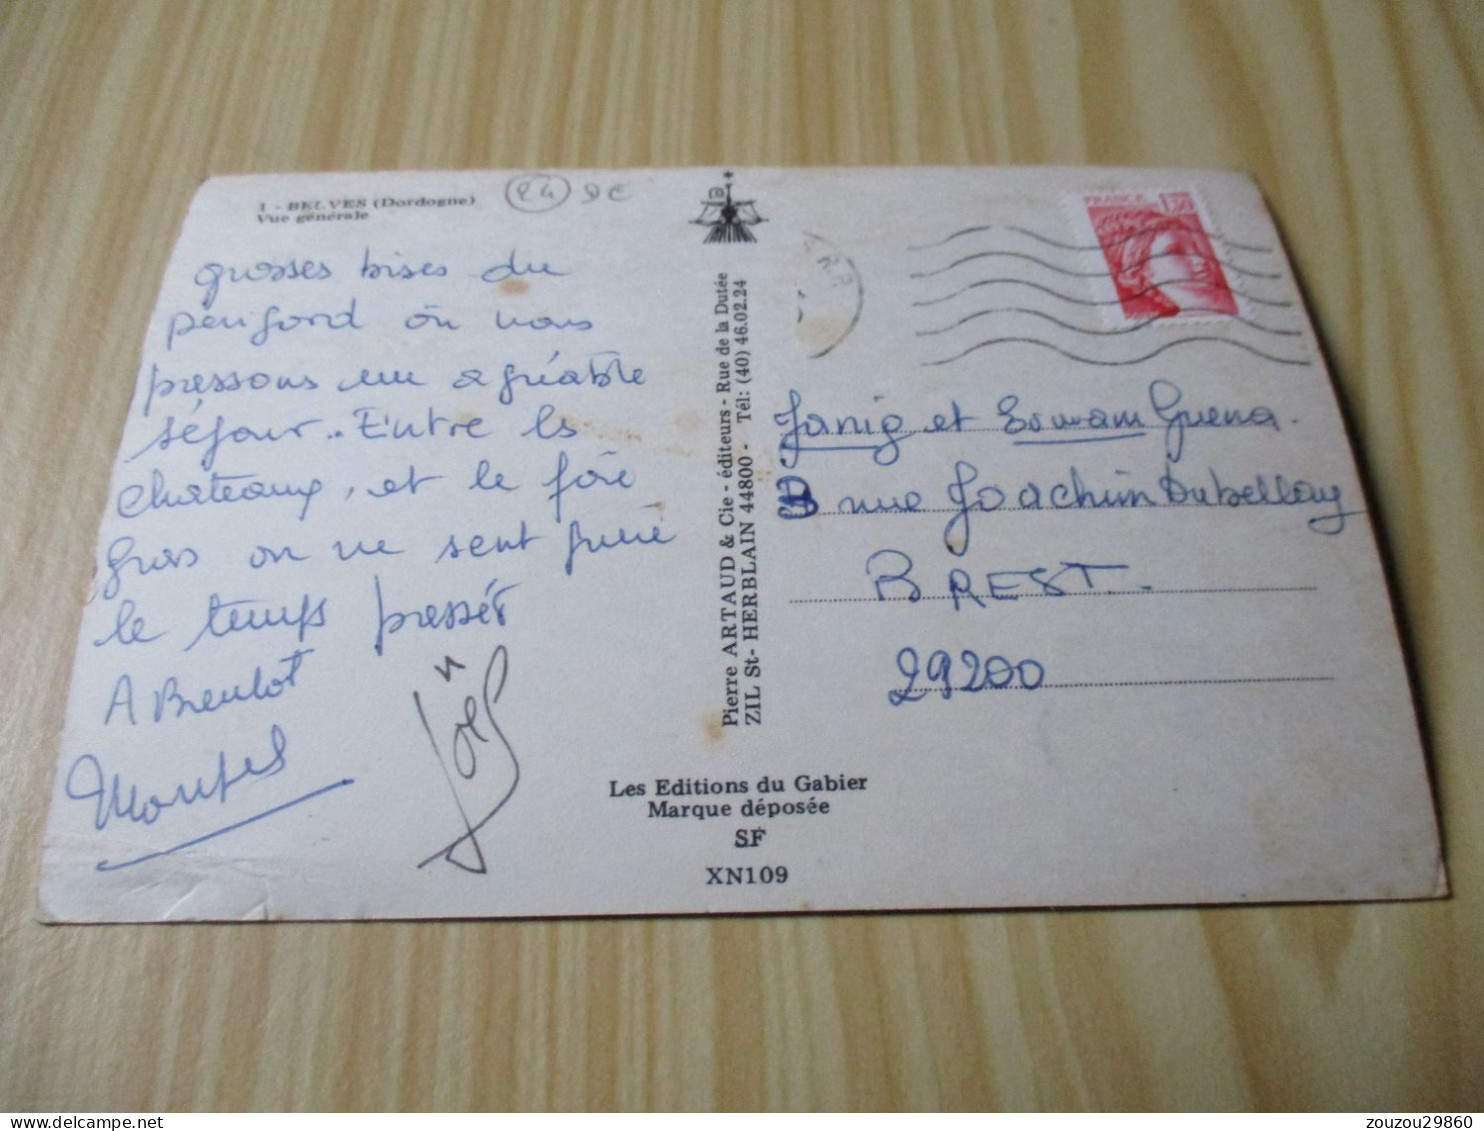 1 - BELVES (Dordogne)
Vue générale
24 DE
grosses bises du
perigord où nous
pressons un agréable
séjour.. Entre les
chateaux, et le foie
gras on ne sent guère
le temps pressér
A Bientot
Joël
Pierre ARTAUD & Cie - éditeurs - Rue de la Dutée
ZIL St-HERBLAIN 44800 - Tél: (40) 46.02.24
Les Editions du Gabier
Marque déposée
SF
XN109
FRANCE 1,30
Janig et Erwan Guena.
rue Joachim Dubellay
BREST.
29200
zouzou29860